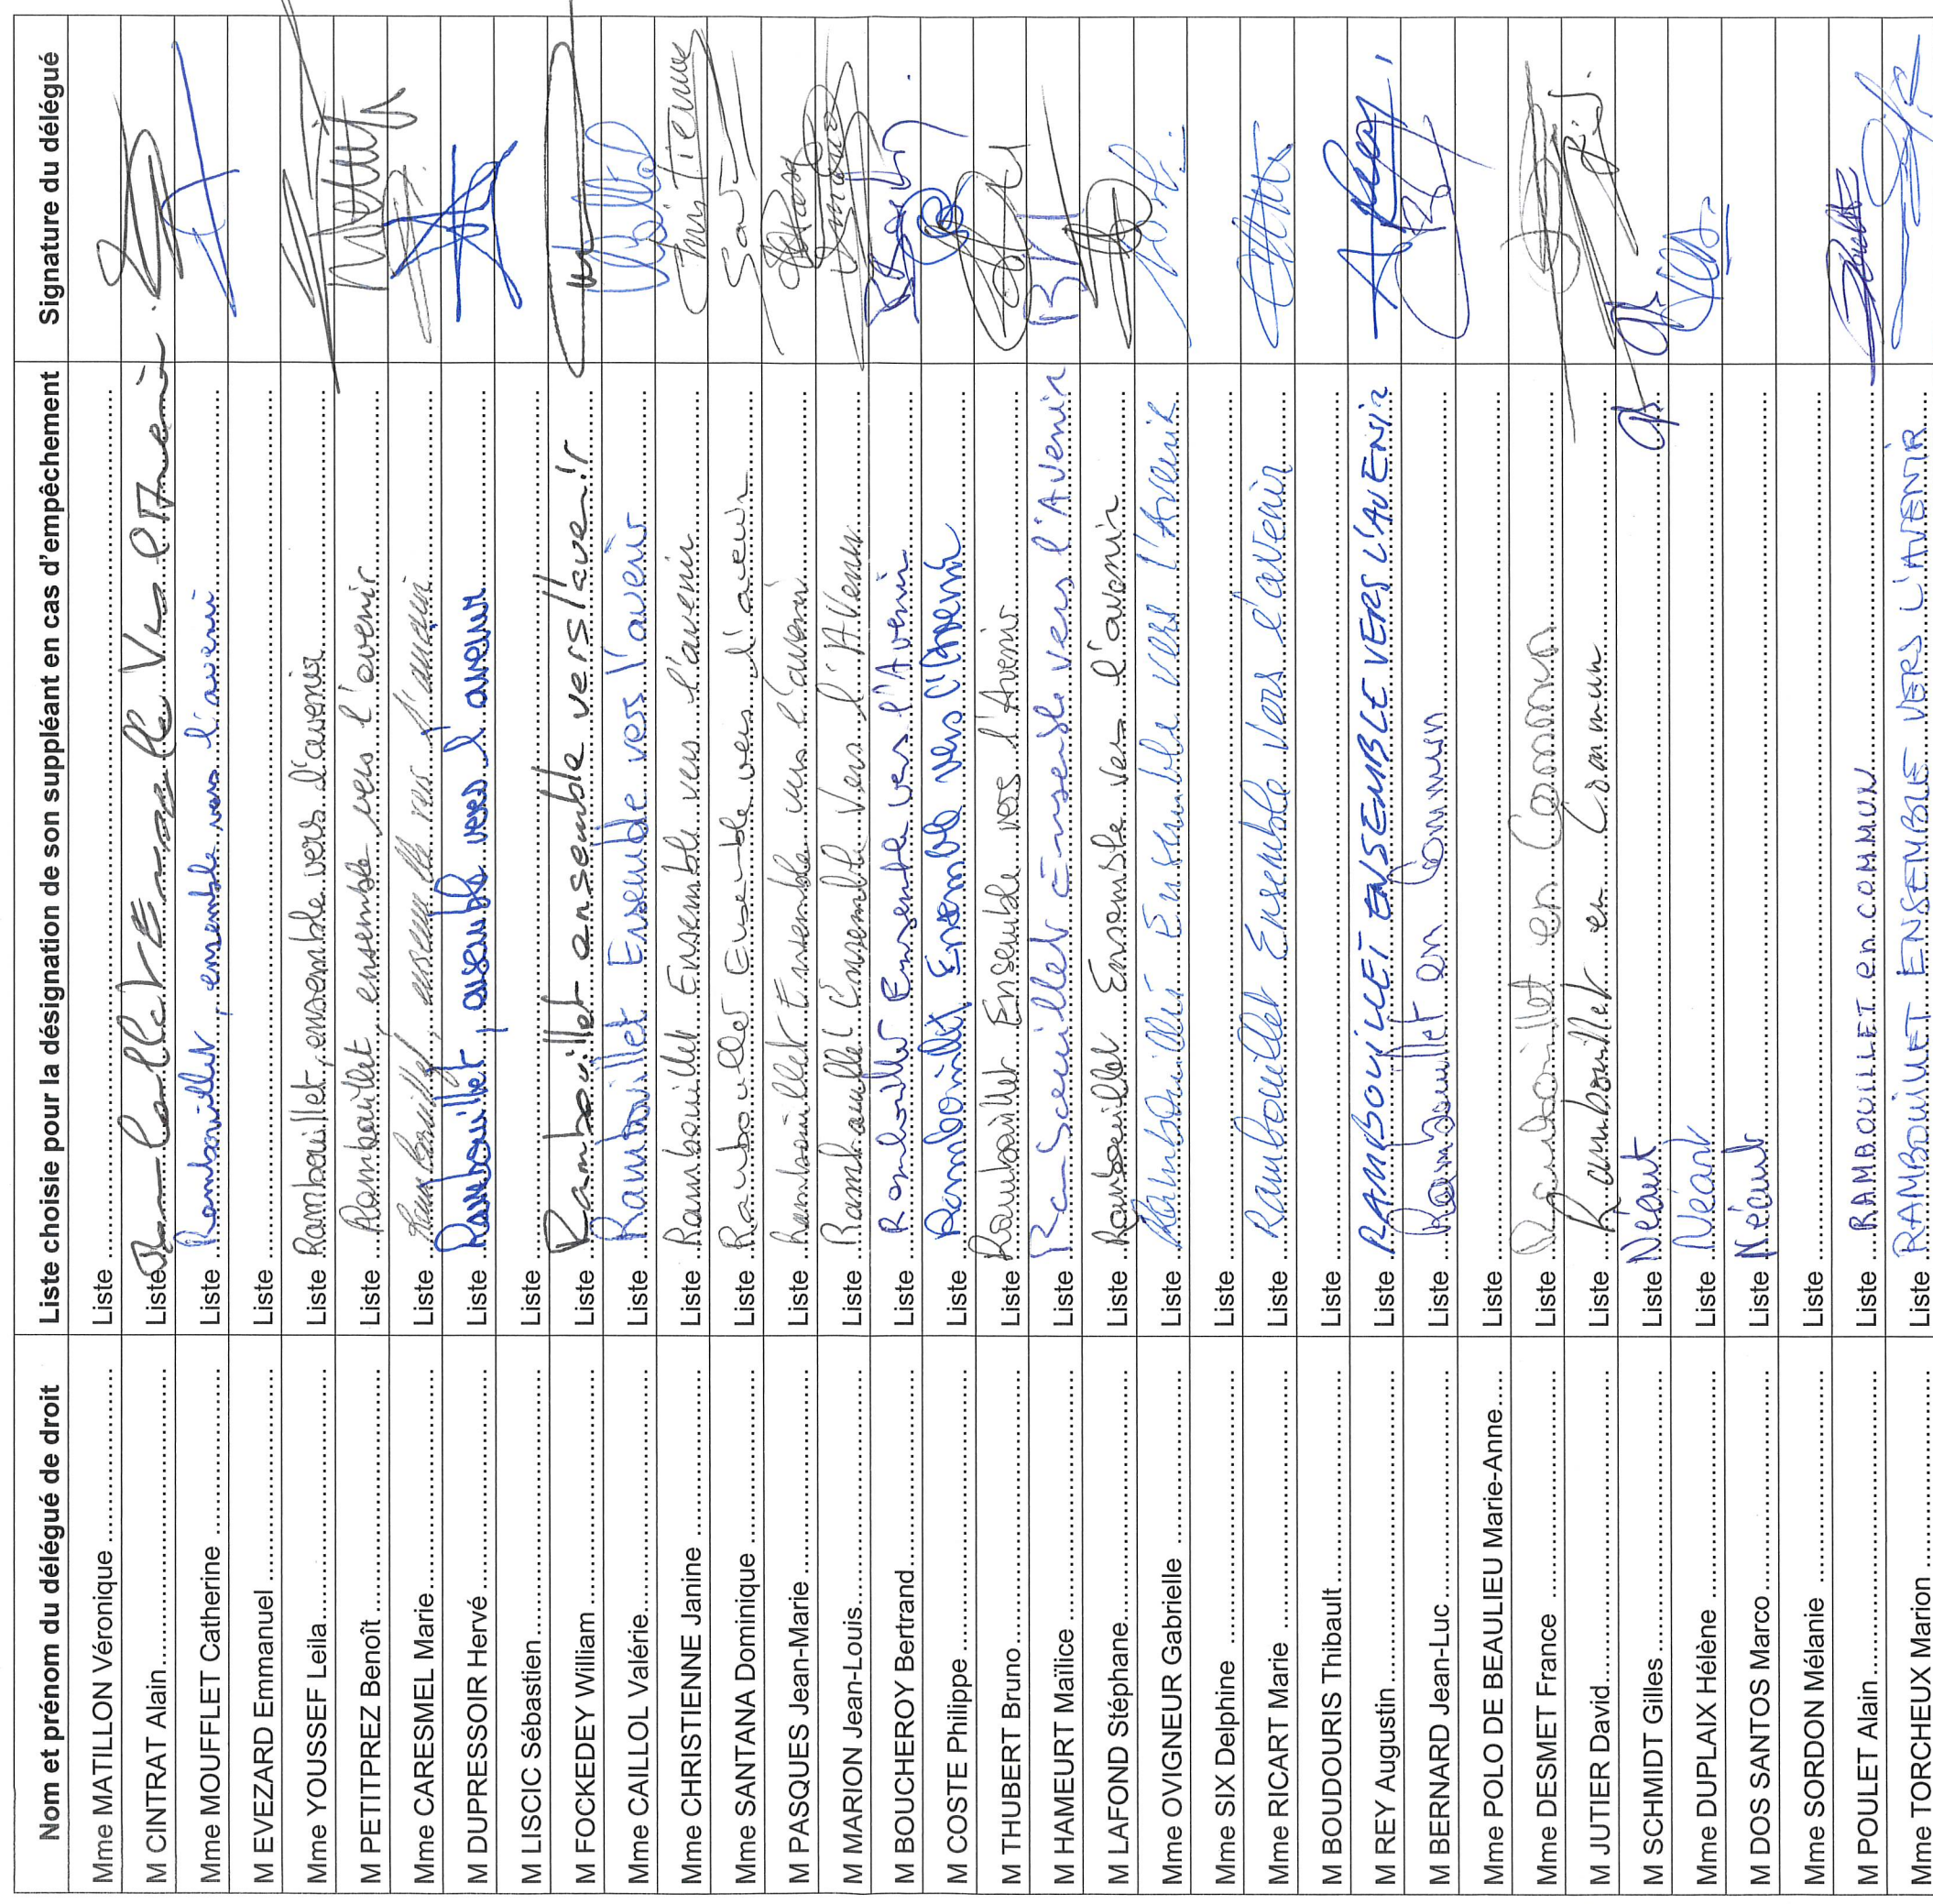 Nom et prénom du délégué de droit Liste choisie pour la désignation de son supléant en cas d'empêchement Signature du délégué
Mme MATILLON Véronique Liste
M CINTRAT Alain Liste Vers l'Avenir
Mme MOUFFLET Catherine Liste Rambouillet, ensemble vers l'avenir
M EVEZARD Emmanuel Liste
Mme YOUSSEF Leila Liste Rambouillet, ensemble vers l'avenir
M PETITPREZ Benoît Liste Rambouillet, ensemble vers l'avenir
Mme CARESMEL Marie Liste Rambouillet, ensemble vers l'avenir
M DUPRESSOIR Hervé Liste Rambouillet, ensemble vers l'avenir
M LISCIC Sébastien Liste
M FOCKEDEY William Liste Rambouillet ensemble vers l'avenir
Mme CAILLOL Valérie Liste Rambouillet Ensemble vers l'avenir
Mme CHRISTIENNE Janine Liste Rambouillet Ensemble vers l'avenir
Mme SANTANA Dominique Liste Rambouillet Ensemble vers l'avenir
M PASQUES Jean-Marie Liste Rambouillet Ensemble vers l'avenir
M MARION Jean-Louis Liste Rambouillet Ensemble Vers l'Avenir
M BOUCHEROY Bertrand Liste Rambouillet Ensemble vers l'Avenir
M COSTE Philippe Liste Rambouillet Ensemble vers l'Avenir
M THUBERT Bruno Liste Rambouillet Ensemble vers l'Avenir
M HAMEURT Maïlice Liste Rambouillet Ensemble vers l'Avenir
M LAFOND Stéphane Liste Rambouillet Ensemble vers l'avenir
Mme OVIGNEUR Gabrielle Liste Rambouillet Ensemble vers l'Avenir
Mme SIX Delphine Liste
Mme RICART Marie Liste Rambouillet Ensemble vers l'avenir
M BOUDOURIS Thibault Liste
M REY Augustin Liste RAMBOUILLET ENSEMBLE VERS L'AVENIR
M BERNARD Jean-Luc Liste Rambouillet en Commun
Mme POLO DE BEAULIEU Marie-Anne Liste
Mme DESMET France Liste Rambouillet en Commun
M JUTIER David Liste Rambouillet en Commun
M SCHMIDT Gilles Liste Néant
Mme DUPLAIX Hélène Liste Néant
M DOS SANTOS Marco Liste Néant
Mme SORDON Mélanie Liste
M POULET Alain Liste RAMBOUILLET en COMMUN
Mme TORCHEUX Marion Liste RAMBOUILLET ENSEMBLE VERS L'AVENIR